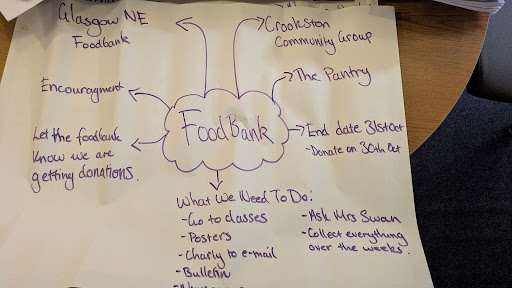 Glasgow NE
Foodbank
Crookston
Community Group
The Pantry
Encouragment
FoodBank
End date 31st Oct
-Donate on 30th Oct
Let the foodbank
know we are
getting donations.
What We Need To Do:
-Go to classes
-Posters
-Charly to e-mail
-Bulletin
-Ask Mrs Swan
-Collect everything
over the weeks.